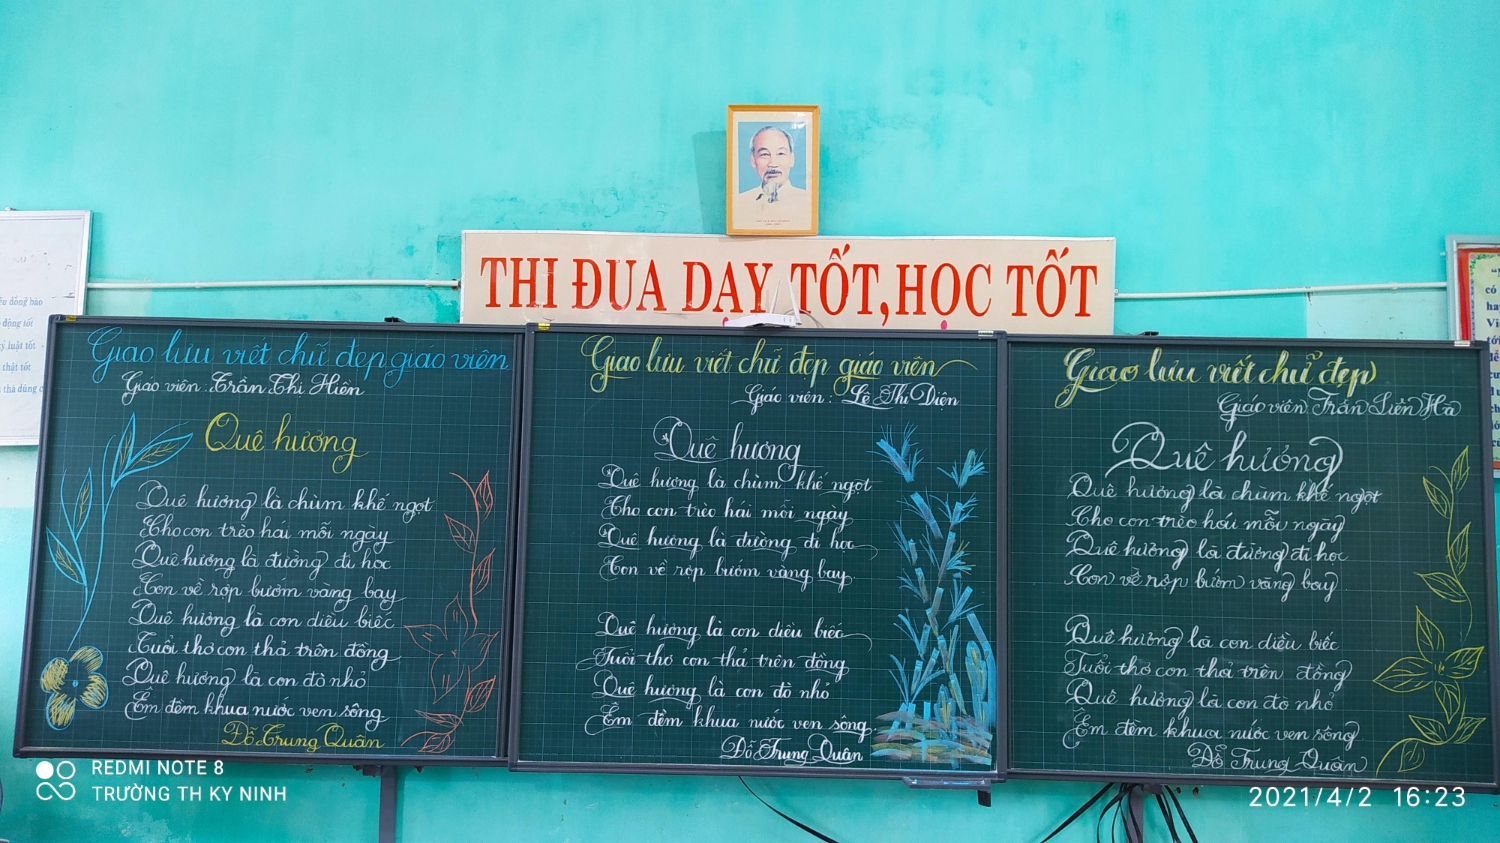 THI ĐUA DẠY TỐT, HỌC TỐT
Giao lưu viết chữ đẹp giáo viên
Giáo viên: Trần Thị Hiên
Quê hương
Quê hương là chùm khế ngọt
Cho con trèo hái mỗi ngày
Quê hương là đường đi học
Con về rợp bướm vàng bay
Quê hương là con diều biếc
Tuổi thơ con thả trên đồng
Quê hương là con đò nhỏ
Êm đềm khua nước ven sông
Đỗ Trung Quân
Giao lưu viết chữ đẹp giáo viên
Giáo viên: Lê Thị Diện
Quê hương
Quê hương là chùm khế ngọt
Cho con trèo hái mỗi ngày
Quê hương là đường đi học
Con về rợp bướm vàng bay
Quê hương là con diều biếc
Tuổi thơ con thả trên đồng
Quê hương là con đò nhỏ
Êm đềm khua nước ven sông.
Đỗ Trung Quân
Giao lưu viết chữ đẹp
Giáo viên: Trần Liên Hà
Quê hương
Quê hương là chùm khế ngọt
Cho con trèo hái mỗi ngày
Quê hương là đường đi học
Con về rợp bướm vàng bay
Quê hương là con diều biếc
Tuổi thơ con thả trên đồng
Quê hương là con đò nhỏ
Êm đềm khua nước ven sông
Đỗ Trung Quân
đồng bào
động tốt
kỷ luật tốt
thật tốt
thà dũng c
REDMI NOTE 8
TRƯỜNG TH KY NINH
2021/4/2 16:23